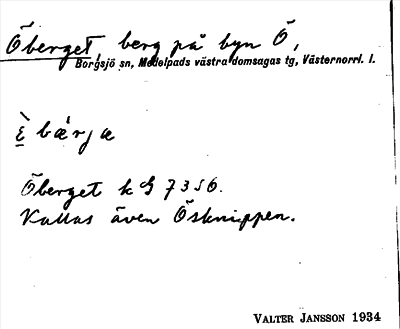 Öberget, berg på byn Ö,
Borgsjö sn, Medelpads västra domsagas tg, Västernorrl. l.
Öberget k G 7356.
Kallas även Ösknippen.
VALTER JANSSON 1934